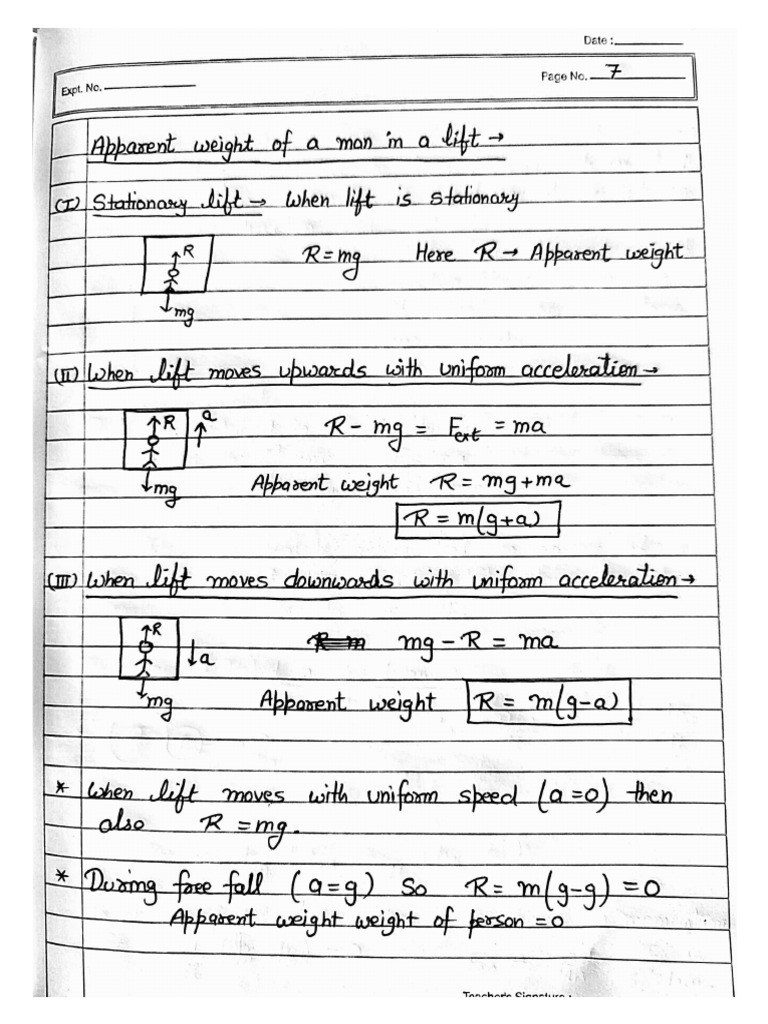 Date :
Expt. No.
Page No. 7
Apparent weight of a man in a lift →
(I) Stationary lift → When lift is stationary
R
R = mg Here R → Apparent weight
mg
(II) When lift moves upwards with uniform acceleration →
R a
R - mg = Fext = ma
mg
Apparent weight R = mg + ma
R = m(g+a)
(III) When lift moves downwards with uniform acceleration →
R
a
mg - R = ma
mg
Apparent weight R = m(g-a)
* When lift moves with uniform speed (a=0) then
also R = mg.
* During free fall (a=g) So R = m(g-g) = 0
Apparent weight weight of person = 0
Teacher's Signature :